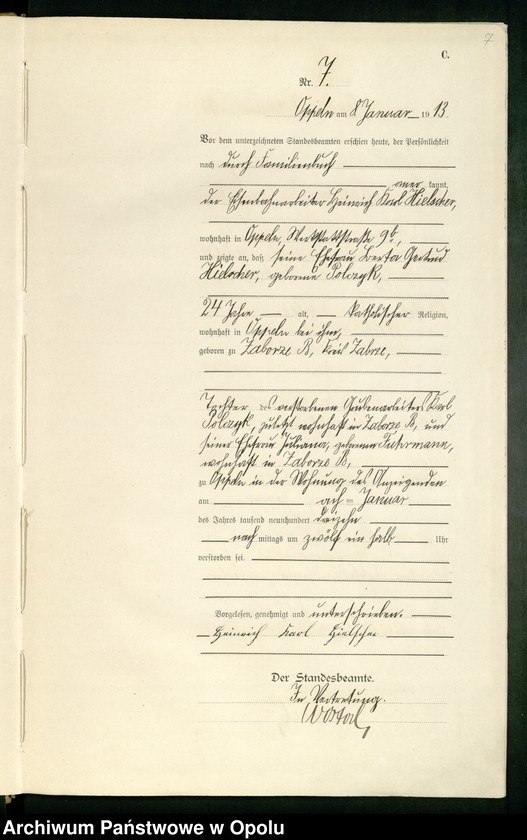 7
C.
Nr. 7.
Oppeln am 8 Januar 1913.
Vor dem unterzeichneten Standesbeamten erschien heute, der Persönlichkeit
nach durch Familienbuch
aner kannt,
der Eisenbahnarbeiter Heinrich Karl Hielscher,
wohnhaft in Oppeln, Werkstattstraße 9b,
und zeigte an, daß seine Ehefrau Berta Gertrud
Hielscher, geborene Polczyk,
24 Jahre alt, katholischer Religion,
wohnhaft in Oppeln bei ihm,
geboren zu Zaborze B, Kreis Zabrze,
Tochter des verstorbenen Grubenarbeiters Karl
Polczyk, zuletzt wohnhaft in Zaborze B, und
seiner Ehefrau Juliana, geborenen Fuhrmann,
wohnhaft in Zaborze B,
zu Oppeln in der Wohnung des Anzeigenden
am acht en Januar
des Jahres tausend neunhundert dreizehn
nach mittags um zwölf ein halb Uhr
verstorben sei.
Vorgelesen, genehmigt und unterschrieben.
Heinrich Karl Hielscher
Der Standesbeamte.
In Vertretung.
Archiwum Państwowe w Opolu